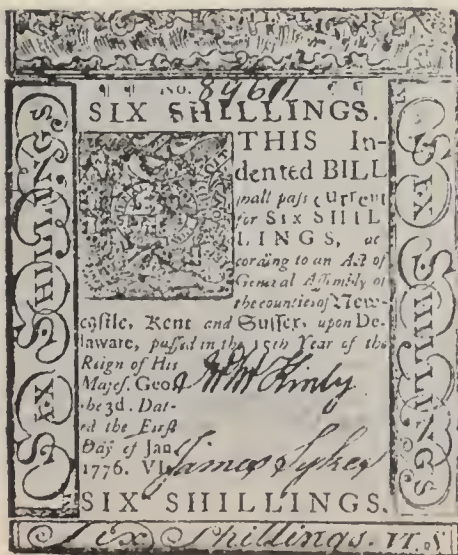 No. 89611
SIX SHILLINGS.
THIS In-
dented BILL
ſhall paſs current
for SIX SHIL
LINGS, ac
cording to an Act of
General Aſſembly of
the counties of New-
caſtle, Kent and Suſſex, upon De-
laware, paſſed in the 15th Year of the
Reign of His
Majeſ. Geo.
the 3d. Dat-
ed the Firſt
Day of Jan.
1776. VI
James Sykes
SIX SHILLINGS.
Six Shillings. VI. S
SIX SHILLINGS
SIX SHILLINGS